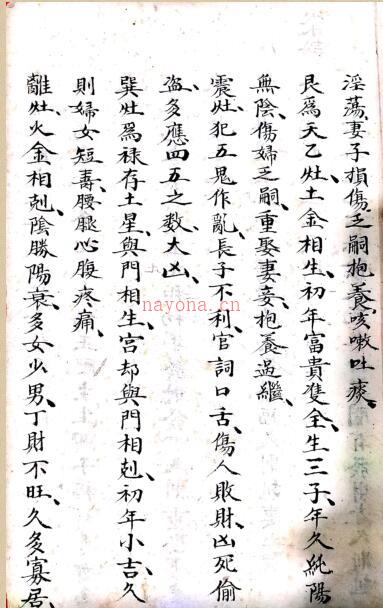 淫荡、妻子損傷乏嗣抱養、咳嗽吐痰、
艮為天乙灶、土金相生、初年富貴雙全、生三子、年久純陽
無陰、傷婦乏嗣、重娶妻妾、抱養過繼、
震灶、犯五鬼作亂、長子不利、官詞口舌、傷人敗財、凶死偷
盗、多應四五之数大凶、
巽灶為禄存土星、與門相生、宮却與門相剋、初年小吉、久
則婦女短壽、腰腿心腹疼痛、
離灶、火金相剋、陰勝陽衰、多女少男、丁財不旺、久多寡居、
nayona.cn